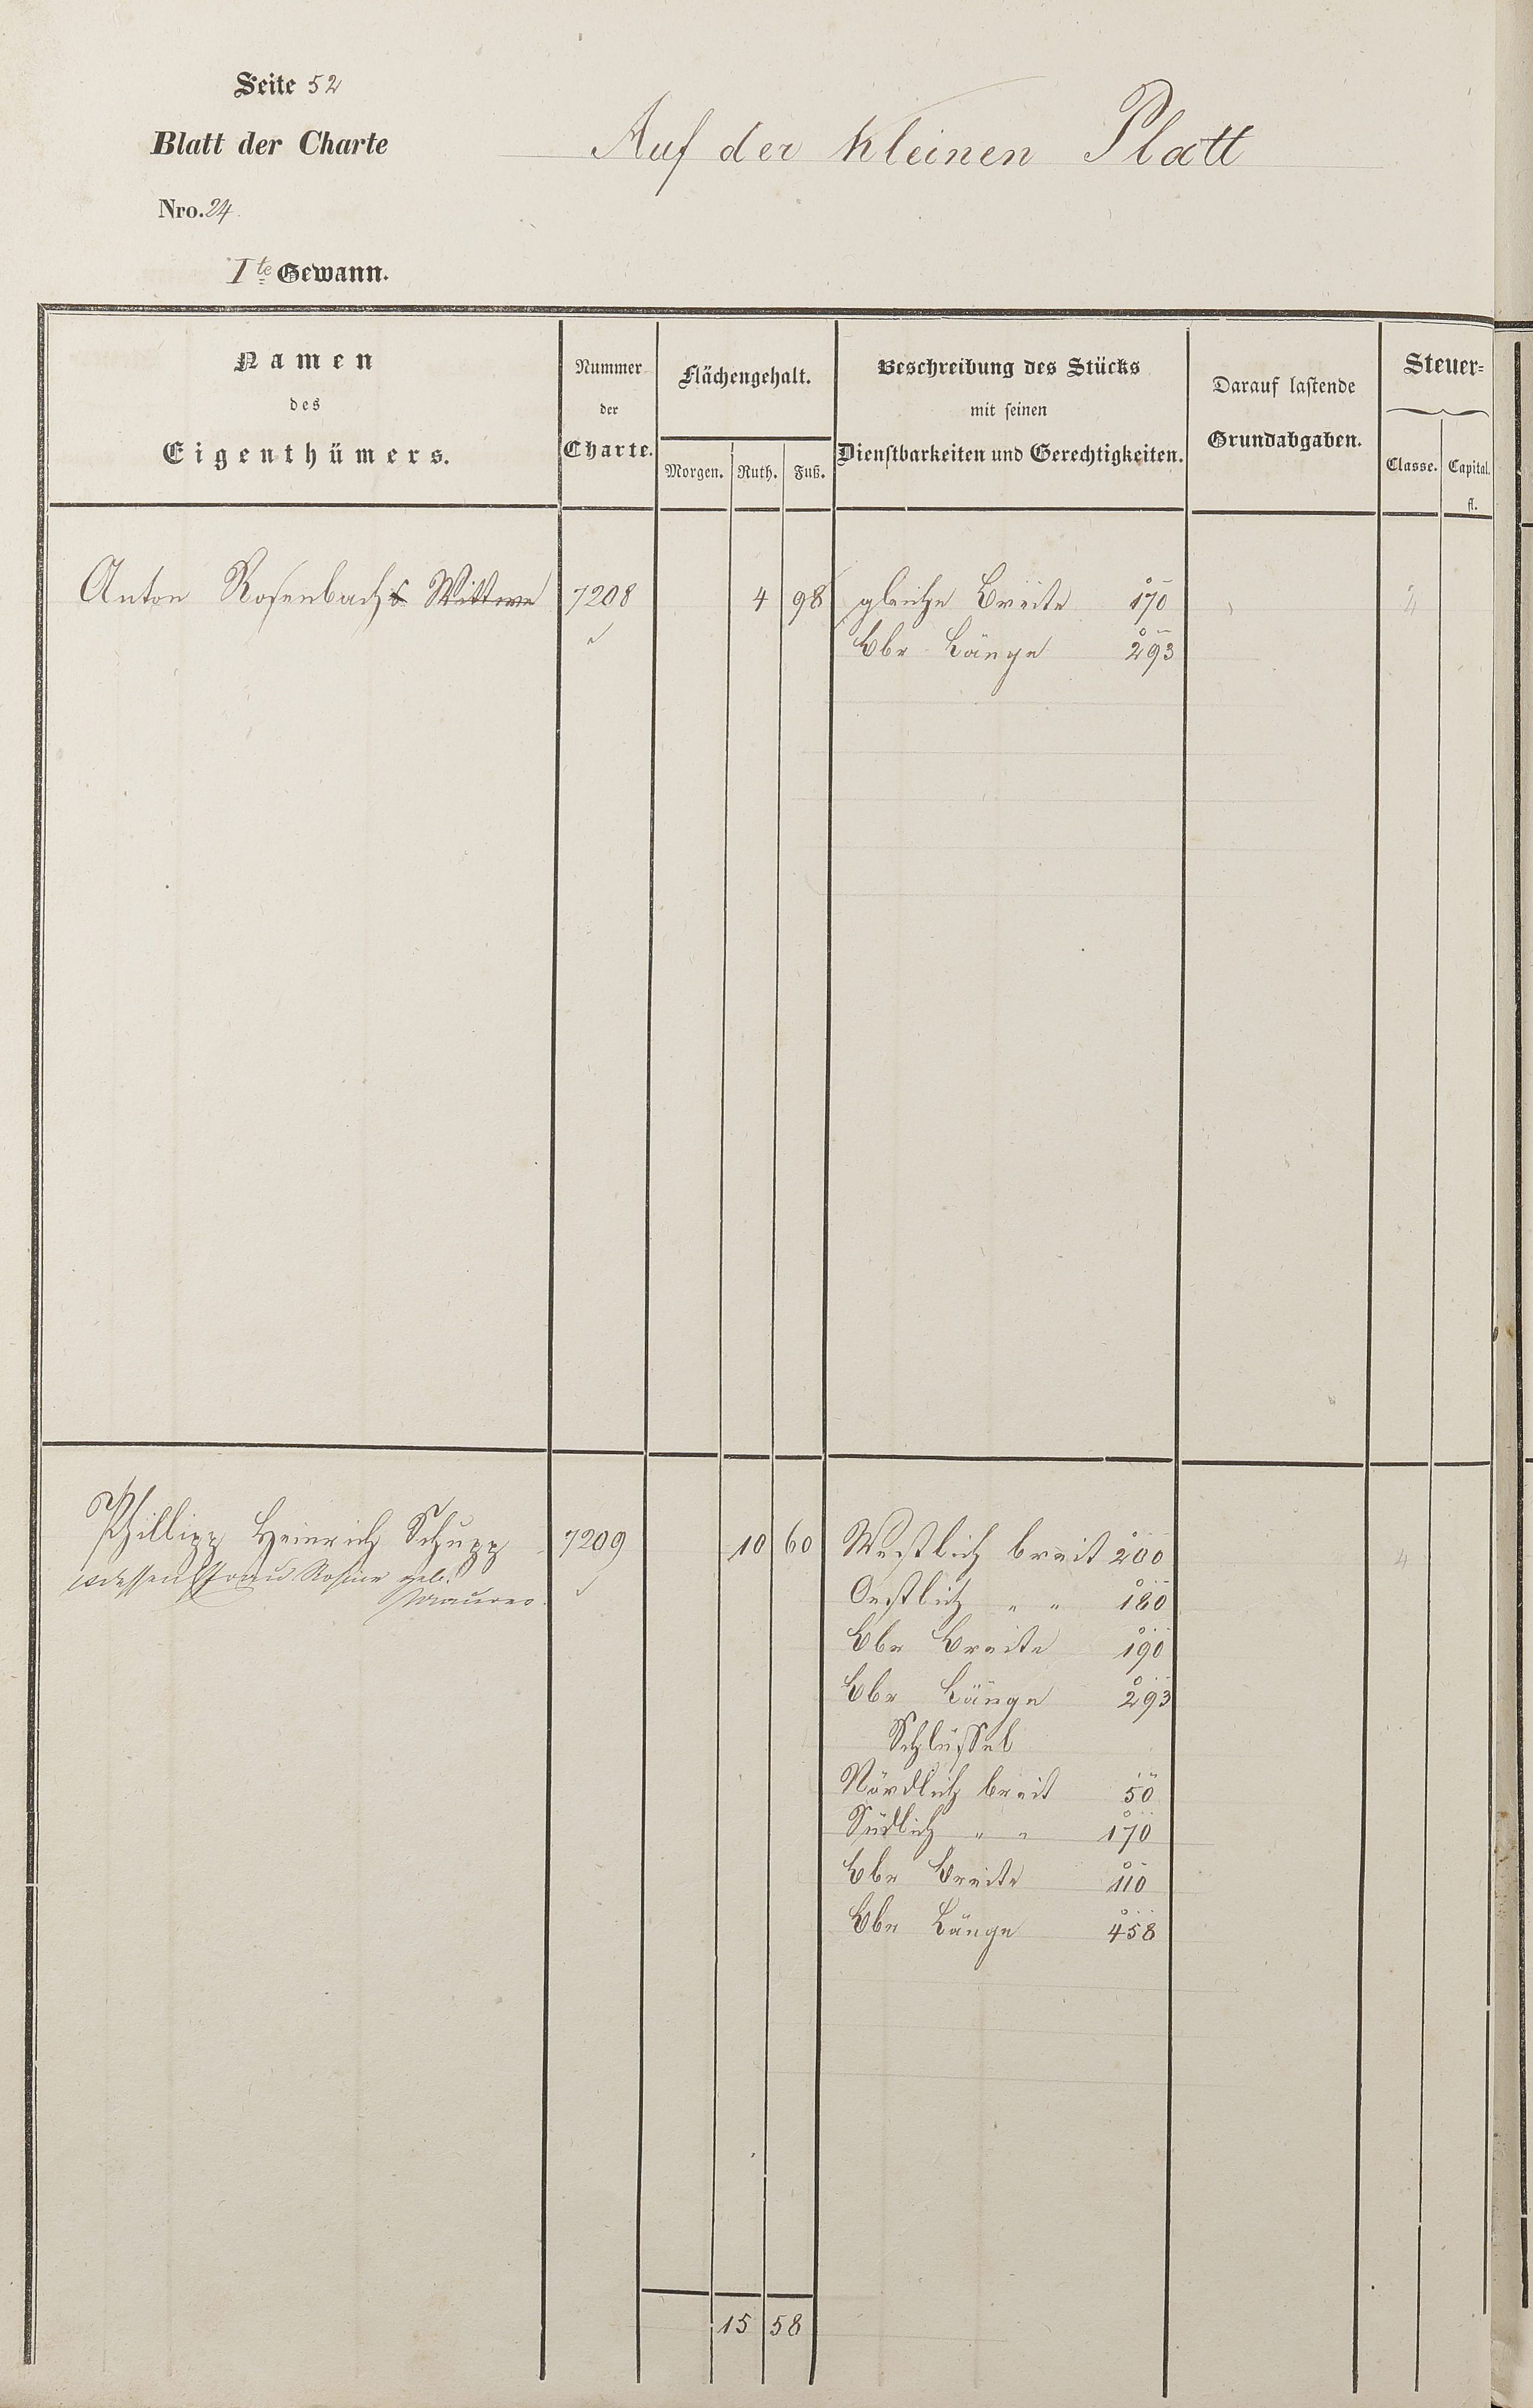 Seite 52
Blatt der Charte
Auf der kleinen Platt
Nro. 24.
Ite Gewann.
Namen
des
Eigenthümers.
Nummer
der
Charte.
Flächengehalt.
Morgen. Ruth. Fuß.
Beschreibung des Stücks
mit seinen
Dienstbarkeiten und Gerechtigkeiten.
Darauf lastende
Grundabgaben.
Steuer=
Classe. Capital.
fl.
Anton Rosenbachs Wittwe 7208 4 98 gleiche Breite 170 4
Länge 293
Phillipp Heinrich Schupp 7209 10 60 Westlich breit 200 4
u dessen Frau Rosine geb. Oestlich " " 180
Maurer.
Breite 190
Länge 293
Schlüssel
Nördlich breit 50
Südlich " " 170
Breite 110
Länge 458
15 58